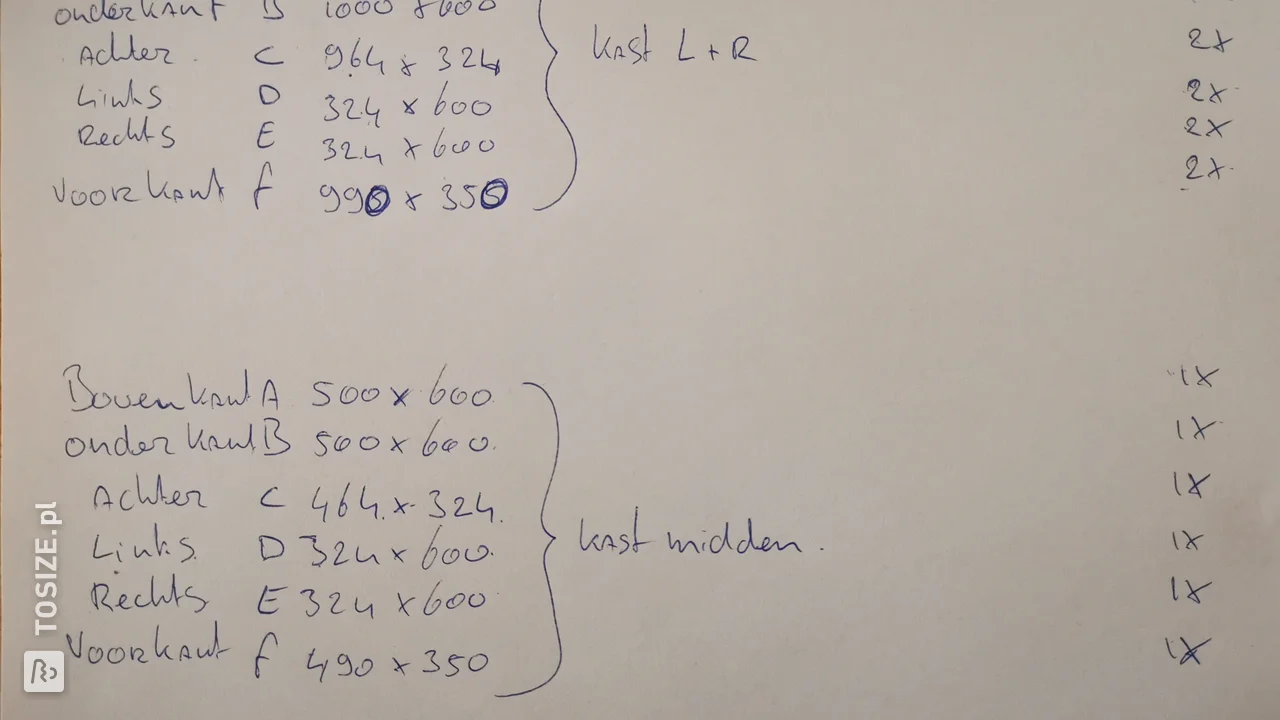 onderkant B 1000 x 600
Achter C 964 x 324 2x
Kast L + R
Links D 324 x 600 2x
Rechts E 324 x 600 2x
Voorkant f 990 x 350 2x
Bovenkant A 500 x 600 1x
onderkant B 500 x 600 1x
Achter C 464 x 324 1x
Links D 324 x 600 1x
kast midden.
Rechts E 324 x 600 1x
Voorkant f 490 x 350 1x
TOSIZE.pl